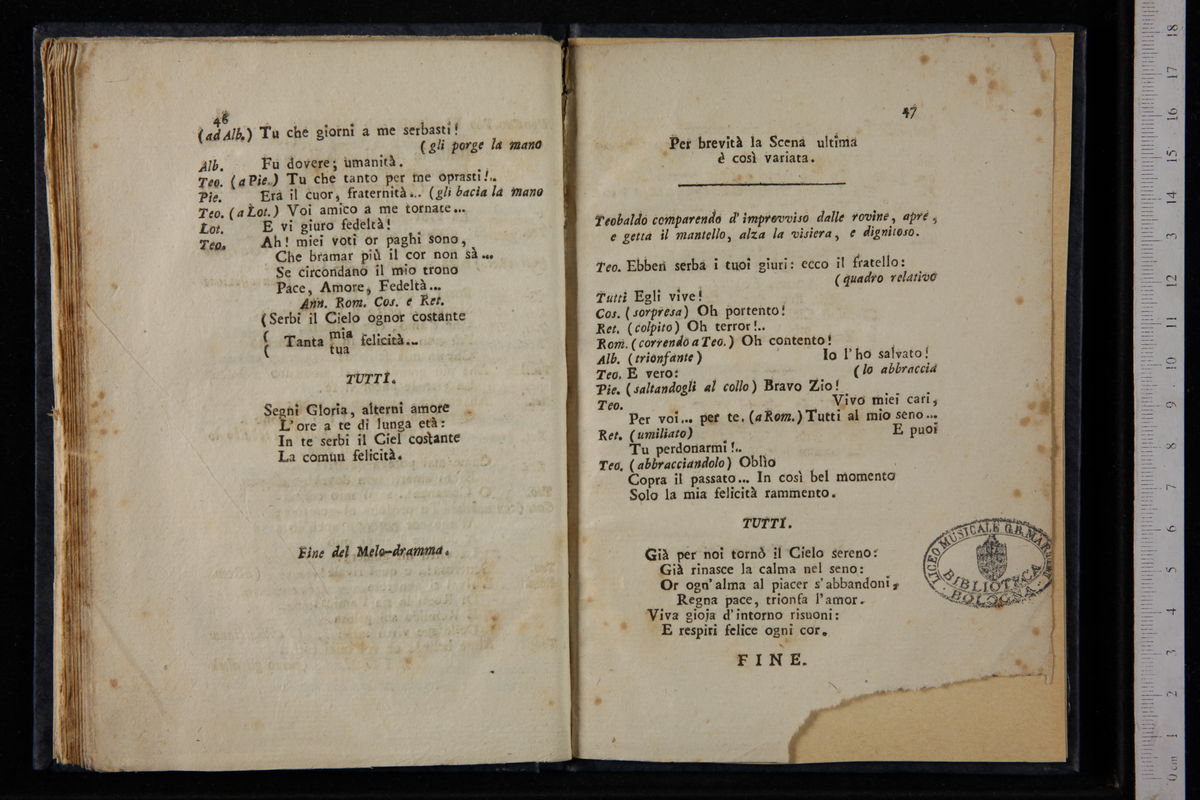 46
(ad Alb.) Tu che giorni a me serbasti!
(gli porge la mano
Alb. Fu dovere; umanità.
Teo. (a Pie.) Tu che tanto per me oprasti!..
Pie. Era il cuor, fraternità... (gli bacia la mano
Teo. (a Lot.) Voi amico a me tornate...
Lot. E vi giuro fedeltà!
Teo. Ah! miei voti or paghi sono,
Che bramar più il cor non sà...
Se circondano il mio trono
Pace, Amore, Fedeltà...
Ann. Rom. Cos. e Ret.
(Serbi il Cielo ognor costante
( Tanta mia felicità...
( tua
TUTTI.
Segni Gloria, alterni amore
L'ore a te di lunga età:
In te serbi il Ciel costante
La comun felicità.
Fine del Melo-dramma.
47
Per brevità la Scena ultima
è così variata.
Teobaldo comparendo d'improvviso dalle rovine, apre,
e getta il mantello, alza la visiera, e dignitoso.
Teo. Ebben serba i tuoi giuri: ecco il fratello:
(quadro relativo
Tutti Egli vive!
Cos. (sorpresa) Oh portento!
Ret. (colpito) Oh terror!..
Rom. (correndo a Teo.) Oh contento!
Alb. (trionfante) Io l'ho salvato!
Teo. E vero: (lo abbraccia
Pie. (saltandogli al collo) Bravo Zio!
Teo. Vivo miei cari,
Per voi... per te. (a Rom.) Tutti al mio seno...
Ret. (umiliato) E puoi
Tu perdonarmi!..
Teo. (abbracciandolo) Oblìo
Copra il passato... In così bel momento
Solo la mia felicità rammento.
TUTTI.
Già per noi tornò il Cielo sereno:
Già rinasce la calma nel seno:
Or ogn'alma al piacer s'abbandoni,
Regna pace, trionfa l'amor.
Viva gioja d'intorno risuoni:
E respiri felice ogni cor.
FINE.
LICEO MUSICALE G.B. MARTINI
BIBLIOTECA
BOLOGNA
0 cm 1 2 3 4 5 6 7 8 9 10 11 12 13 14 15 16 17 18